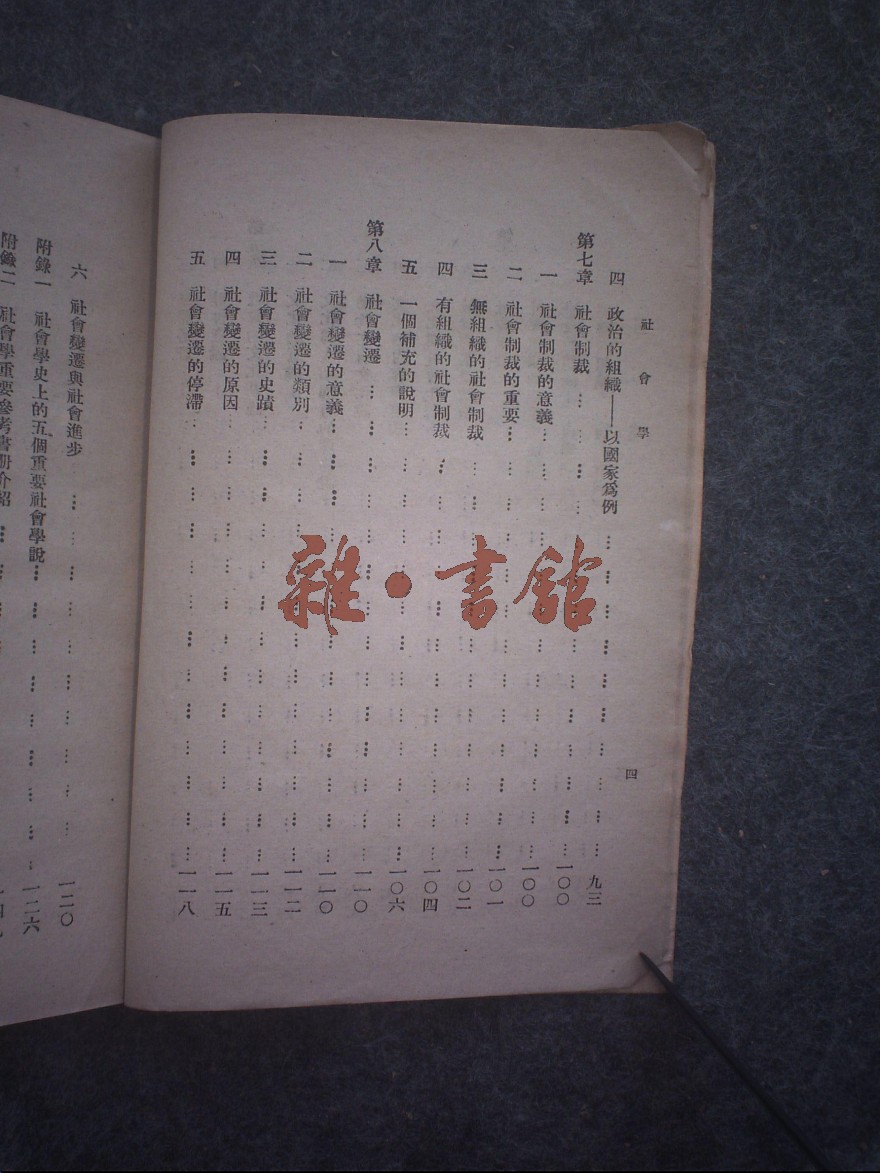 社會學
四
四 政治的組織——以國家爲例 九三
第七章 社會制裁 一〇〇
一 社會制裁的意義 一〇〇
二 社會制裁的重要 一〇一
三 無組織的社會制裁 一〇二
四 有組織的社會制裁 一〇四
五 一個補充的說明 一〇六
第八章 社會變遷 一一〇
一 社會變遷的意義 一一〇
二 社會變遷的類別 一一二
三 社會變遷的史蹟 一一三
四 社會變遷的原因 一一五
五 社會變遷的停滯 一一八
六 社會變遷與社會進步 一二〇
附錄一 社會學史上的五個重要社會學說 一二六
附錄二 社會學重要參考書册介紹
雜·書館